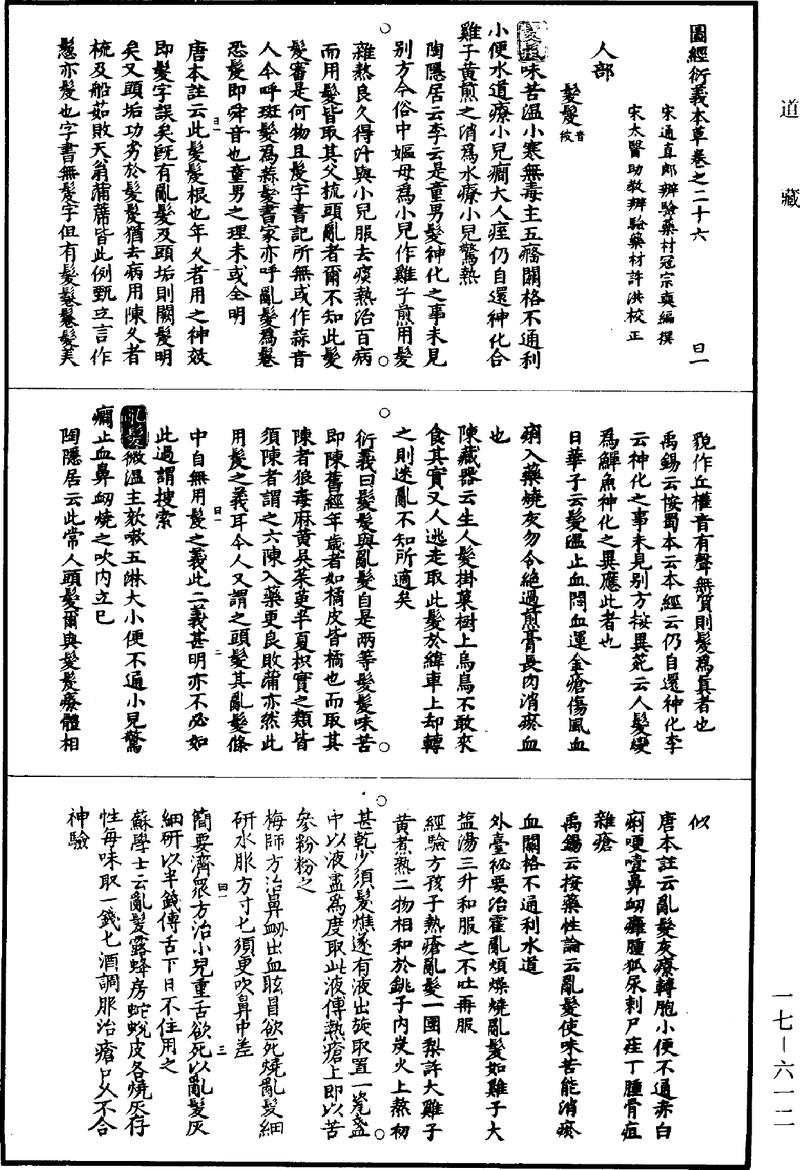 道藏
圖經衍義本草卷之二十六
曰一
宋通直郎辨驗藥材寇宗奭編撰
宋太醫助教辨驗藥材許洪校正
人部
髮髲音被
髮髲味苦溫小寒無毒主五癃關格不通利
小便水道療小兒癇大人痓仍自還神化合
雞子黃煎之消為水療小兒驚熱
陶隱居云李云是童男髮神化之事未見
別方今俗中嫗母為小兒作雞子煎用髮
雜熬良久得汁與小兒服去痰熱治百病
而用髮皆取其父梳頭亂者爾不知此髮
髲審是何物且髲字書記所無或作蒜音
人今呼斑髮為蒜髮書家亦呼亂髮為鬈
恐髲即舜音也童男之理未或全明
曰一
唐本註云此髮髲根也年久者用之神效
即髮字誤矣既有亂髮及頭垢則闕髮明
矣又頭垢功劣於髮髲猶去病用陳久者
梳及船茹敗天翁蒲蓆皆此例甄立言作
鬄亦髮也字書無髲字但有髮鬈鬈髮美
貌作丘權音有聲無質則髲為真者也
禹錫云按蜀本云本經云仍自還神化李
云神化之事未見別方按異苑云人髮變
為鱓魚神化之異應此者也
日華子云髮溫止血悶血運金瘡傷風血
痢入藥燒灰勿令絕過煎膏長肉消瘀血
也
陳藏器云生人髮掛菓樹上烏鳥不敢來
食其實又人逃走取此髮於緯車上却轉
之則迷亂不知所適矣
衍義曰髮髲與亂髮自是兩等髮髲味苦
即陳舊經年歲者如橘皮皆橘也而取其
陳者狼毒麻黃吳茱萸半夏枳實之類皆
須陳者謂之六陳入藥更良敗蒲亦然此
用髲之義耳今人又謂之頭髮其亂髮條
曰一
二
中自無用髲之義此二義甚明亦不必如
此過謂搜索
亂髮微溫主欬嗽五淋大小便不通小兒驚
癇止血鼻衂燒之吹內立已
陶隱居云此常人頭髮爾與髮髲療體相
似
唐本註云亂髮灰療轉胞小便不通赤白
痢哽噎鼻衂癰腫狐尿刺尸疰丁腫骨疽
雜瘡
禹錫云按藥性論云亂髮使味苦能消瘀
血關格不通利水道
外臺祕要治霍亂煩燥燒亂髮如雞子大
塩湯三升和服之不吐再服
經驗方孩子熱瘡亂髮一團梨許大雞子
黃煮熟二物相和於銚子內炭火上熬初
甚乾少須髮燋遂有液出旋取置一瓷盞
中以液盡為度取此液傅熱瘡上即以苦
參粉粉之
梅師方治鼻衂出血眩冒欲死燒亂髮細
研水服方寸匕須更吹鼻中差
四一
三
簡要濟眾方治小兒重舌欲死以亂髮灰
細研以半錢傅舌下日不住用之
蘇學士云亂髮露蜂房蛇蛻皮各燒灰存
性每味取一錢匕酒調服治瘡口久不合
神驗
一七—六一二